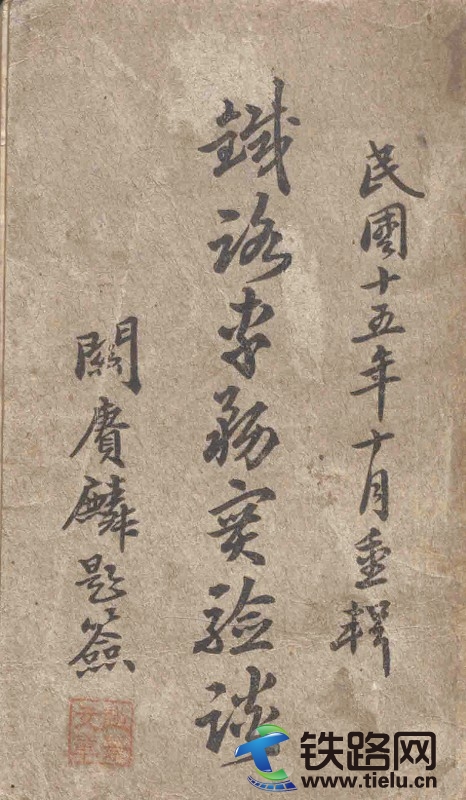 民國十五年十月重輯
鐵路車務實驗談
關賡麟題簽
铁路网
www.tielu.cn